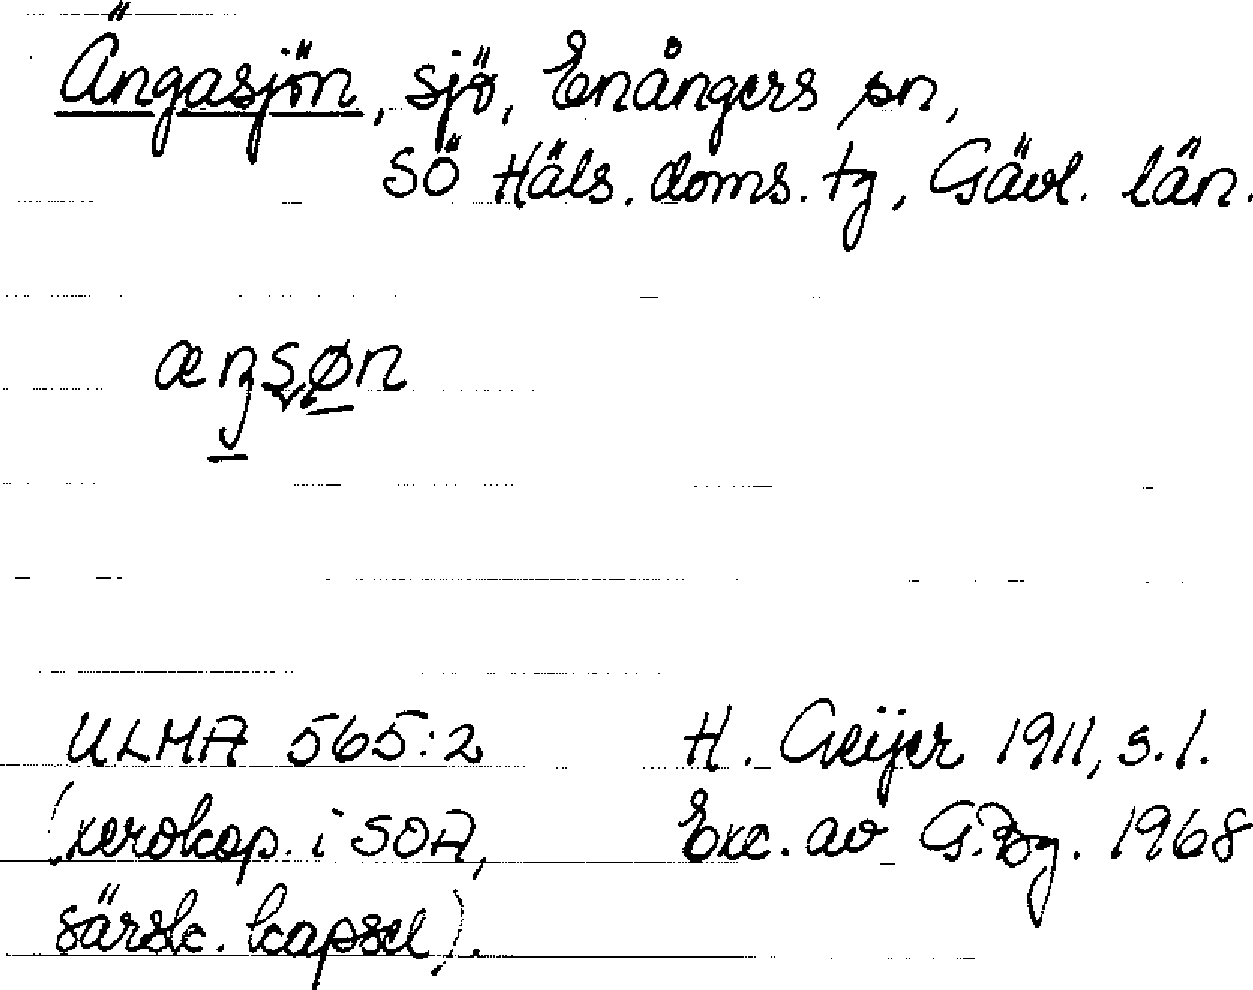 Ängasjön, sjö, Enångers sn,
SÖ Häls. doms. tg, Gävl. län.
æŋsøn
ULMA 565:2
(xerokop. i SOA,
särsk. kapsel).
H. Geijer 1911, s. 1.
Exc. av G.Bg. 1968